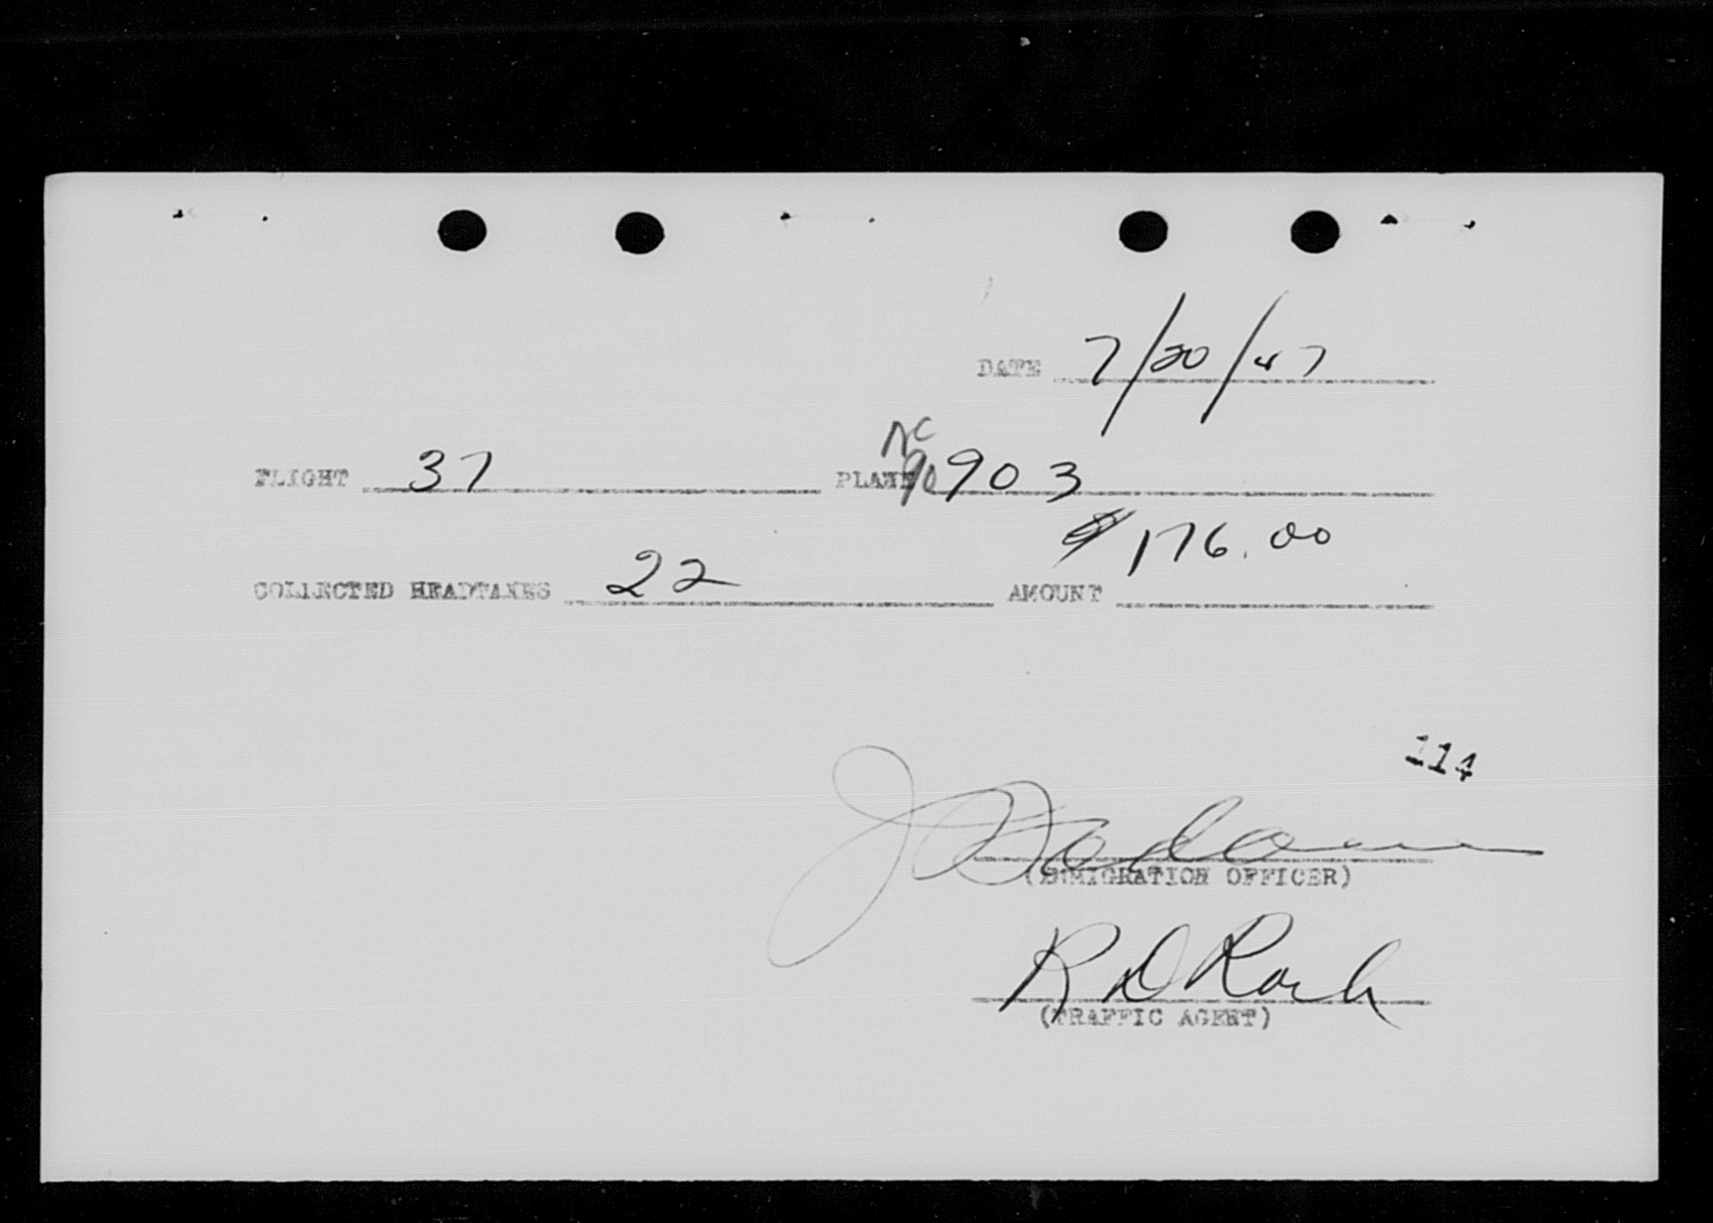 DATE 7/20/47
FLIGHT 37 PLANE NC 90903
COLLECTED HEADTAXES 22 AMOUNT $176.00
114
(IMMIGRATION OFFICER)
R D
(TRAFFIC AGENT)